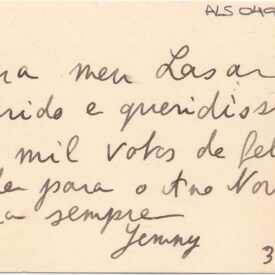 ALS 049
ra meu Lasar
rido e queridiss
mil votos de fel
de para o Ano Nov
a sempre
Jenny
3